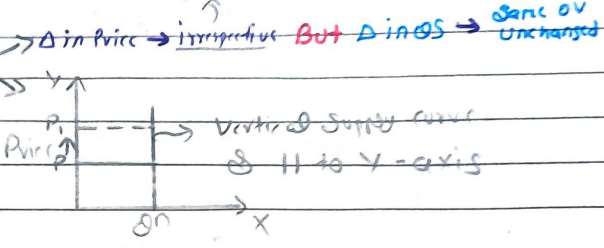 Δ in Price → irrespective But Δ in QS → Same or
unchanged
Y
P1
→ Vertical Supply curve
Price
P
& || to Y-axis
Qn
X